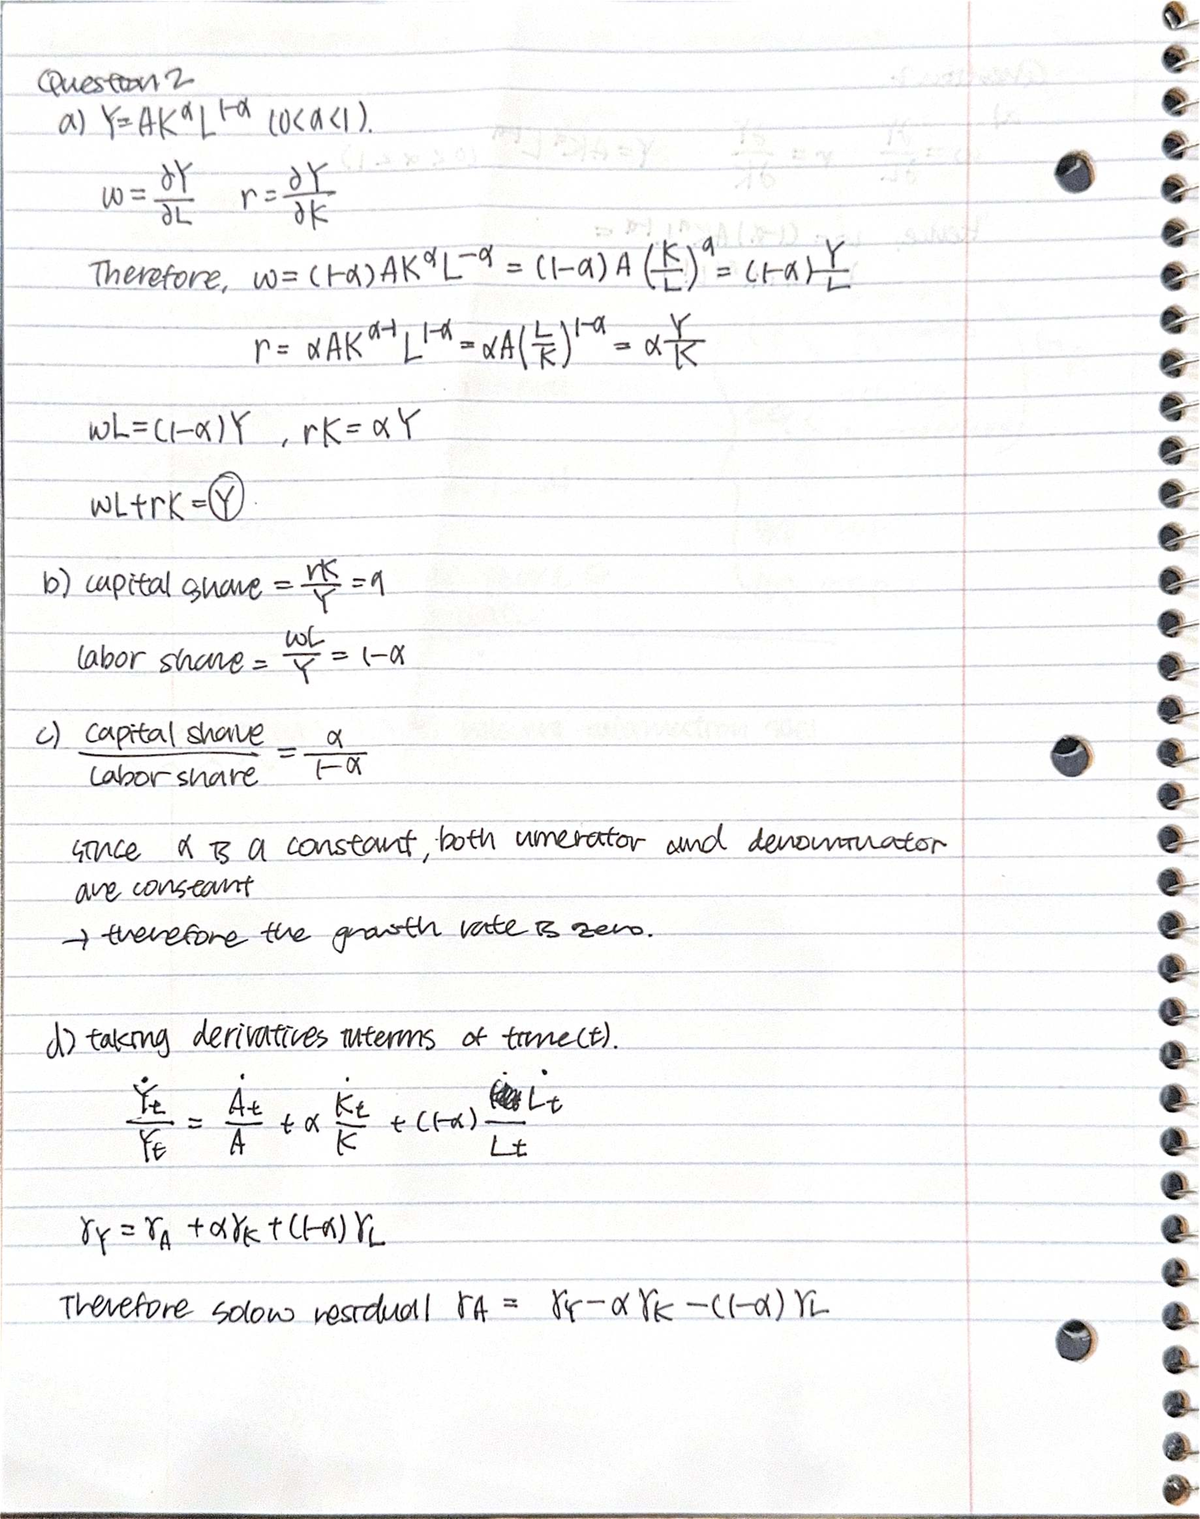 Question 2
a) Y=AK^α L^1-α (0<α<1).
w = ∂Y/∂L   r = ∂Y/∂K
Therefore, w = (1-α)AK^α L^-α = (1-α)A(K/L)^α = (1-α)Y/L
r = αAK^α-1 L^1-α = αA(L/K)^1-α = αY/K
wL=(1-α)Y , rK=αY
wL+rK=Y.
b) capital share = rK/Y = α
labor share = wL/Y = 1-α
c) capital share/labor share = α/1-α
since α is a constant, both umerator and denominator
are constant
→ therefore the growth rate is zero.
d) taking derivatives interms of time(t).
Ẏt/Yt = Ȧt/A + α K̇t/K + (1-α) L̇t/Lt
γY = γA + αγK + (1-α)γL
Therefore solow residual γA = γY - αγK - (1-α)γL